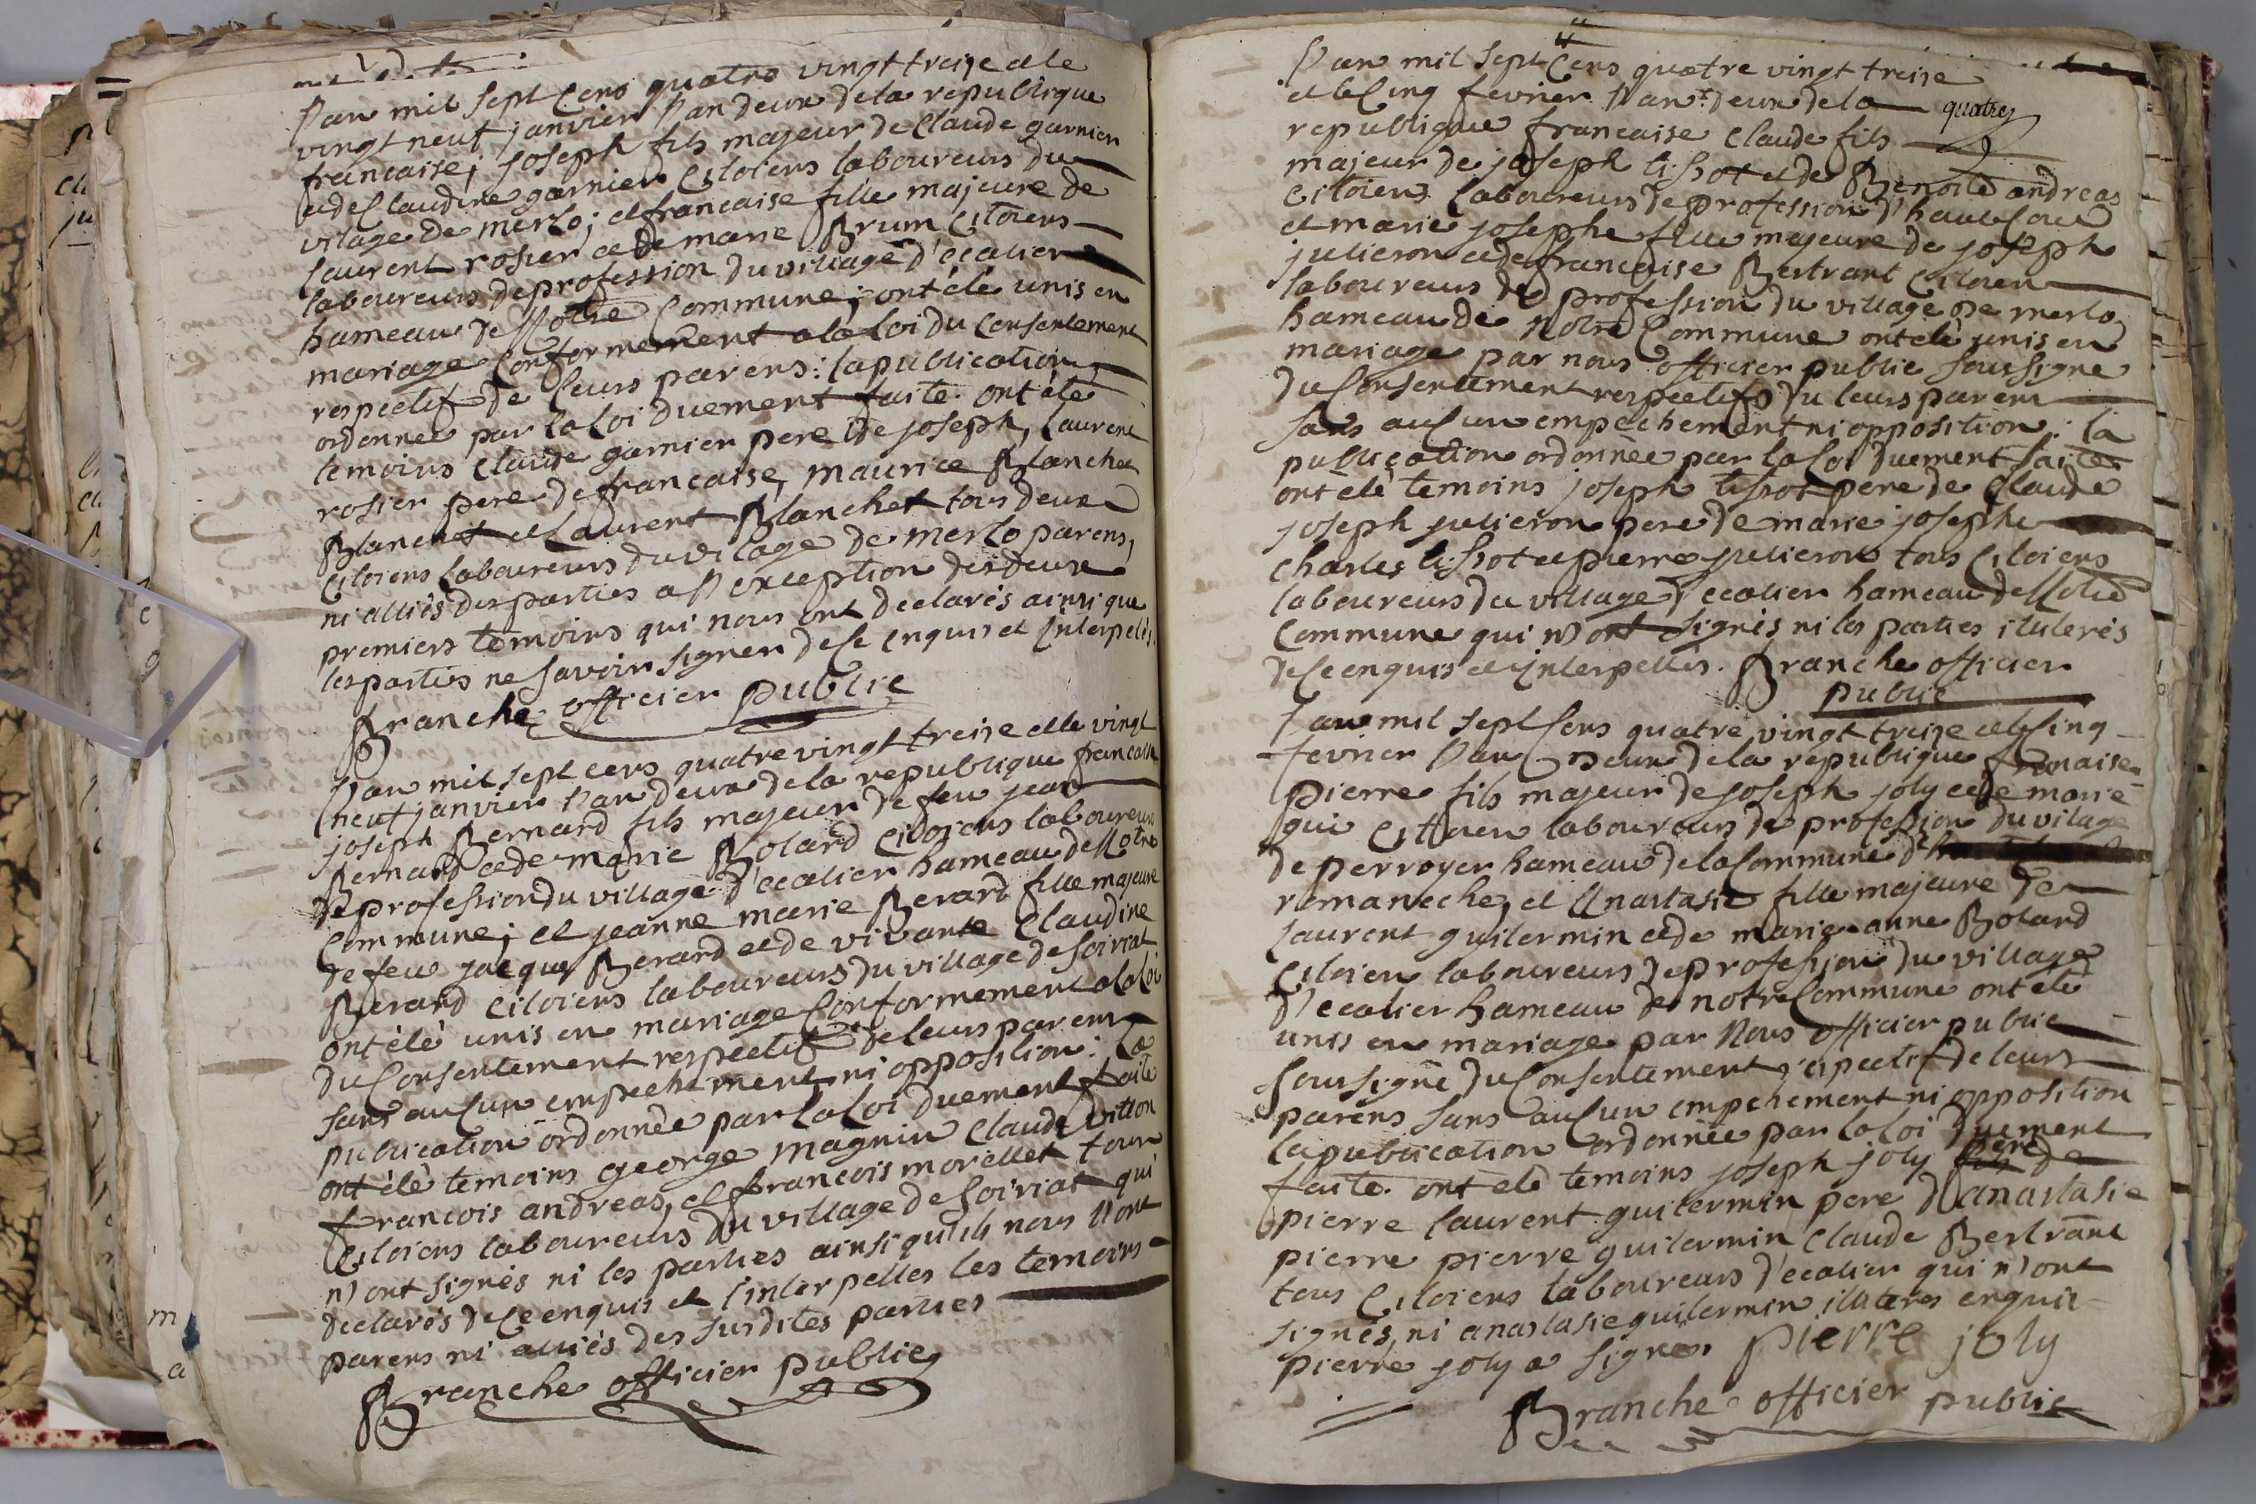 l'an mil sept cens quatre vingt treize et le
vingt neuf janvier l'an deux de la republique
francaise; joseph fils majeur de claude garnier
et de claudine garnier citoiens laboureurs du
vilage de merlo; et francaise fille majeure de
laurent rosier et de marie Brum citoiens
laboureurs de profession du village d'ecalier
hameau de Notre commune; ont été unis en
mariage conformement a la loi du consentement
respectif de leurs parens: la publication
ordonnee par la loi duement faite. ont été
temoins claude garnier pere de joseph, laurent
rosier pere de francaise, maurice Blanchet
Blanchet et laurent Blanchet tous deux
citoiens laboureurs du vilage de merlo parens,
ni alliés des parties a l'exception des deux
premiers temoins qui nous ont declarés ainsi que
les parties ne savoir signer de ce enquis et interpelés.
Branche officier public
l'an mil sept cens quatre vingt treize et le vingt
neuf janvier l'an deux de la republique francaise
joseph Bernard fils majeur de feu jean
Bernard et de marie Bolard citoiens laboureurs
de profession du village d'ecalier hameau de Notre
commune; et jeanne marie Berard fille majeure
de feu jacque Berard et de vivante claudine
Berard citoiens laboureurs du village de soiriat
ont été unis en mariage conformement a la loi
du consentement respectif de leurs parens
sans aucun empechement ni opposition: la
publication ordonnée par la loi duement faite
ont été temoins george magnin claude vitton
francois andreas, et francois morellet tous
citoiens laboureurs du village de soiriat qui
n'ont signés ni les parties ainsi qu'ils nous l'ont
declarés de ce enquis et interpelles les temoins
parens ni alliés des susdites parties
Branche officier public
l'an mil sept cens quatre vingt treise
et le cinq fevrier l'an deux de la quatre
republique francaise claude fils
majeur de joseph tissot et de Benoite andreas
citoiens laboureurs de profession d'
et marie josephe fille majeure de joseph
julieron et de francaise Bertrant citoien
laboureurs de profession du village de merlo
hameau de Notre commune ont été unis en
mariage par nous officier public soussigne
du consentement respectifs du leurs parens
sans aucun empechement ni opposition: la
publication ordonnée par la loi duement faite
ont été temoins joseph tissot pere de claude
joseph julieron pere de marie josephe
charles tissot et pierre julieron tous citoiens
laboureurs du village d'ecalier hameau de Notre
commune qui n'ont signés ni les parties ituterés
de ce enquis et interpellés. Branche officier
public
l'an mil sept cens quatre vingt treize et le cinq
fevrier l'an deux de la republique francaise
pierre fils majeur de joseph joly et de marie
gui citoien laboureurs de profession du vilage
de perroyer hameau de la commune d
romaneche, et Anastasie fille majeure de
laurent guilermin et de marie anne Bolard
citoien laboureurs de profession du village
d'ecalier hameau de notre commune ont été
unis en mariage par Nous officier public
soussigné du consentement respectif de leurs
parens sans aucun empechement ni opposition
la publication ordonnée par la loi duement
faite. ont été temoins joseph joly pere de
pierre laurent guilermin pere d'anastasie
pierre pierre guilermin claude Bertrant
tous citoiens laboureurs d'ecalier qui n'ont
signés, ni anastasie guilermin ilateres enquis
pierre joly a signé. pierre joly
Branche officier public